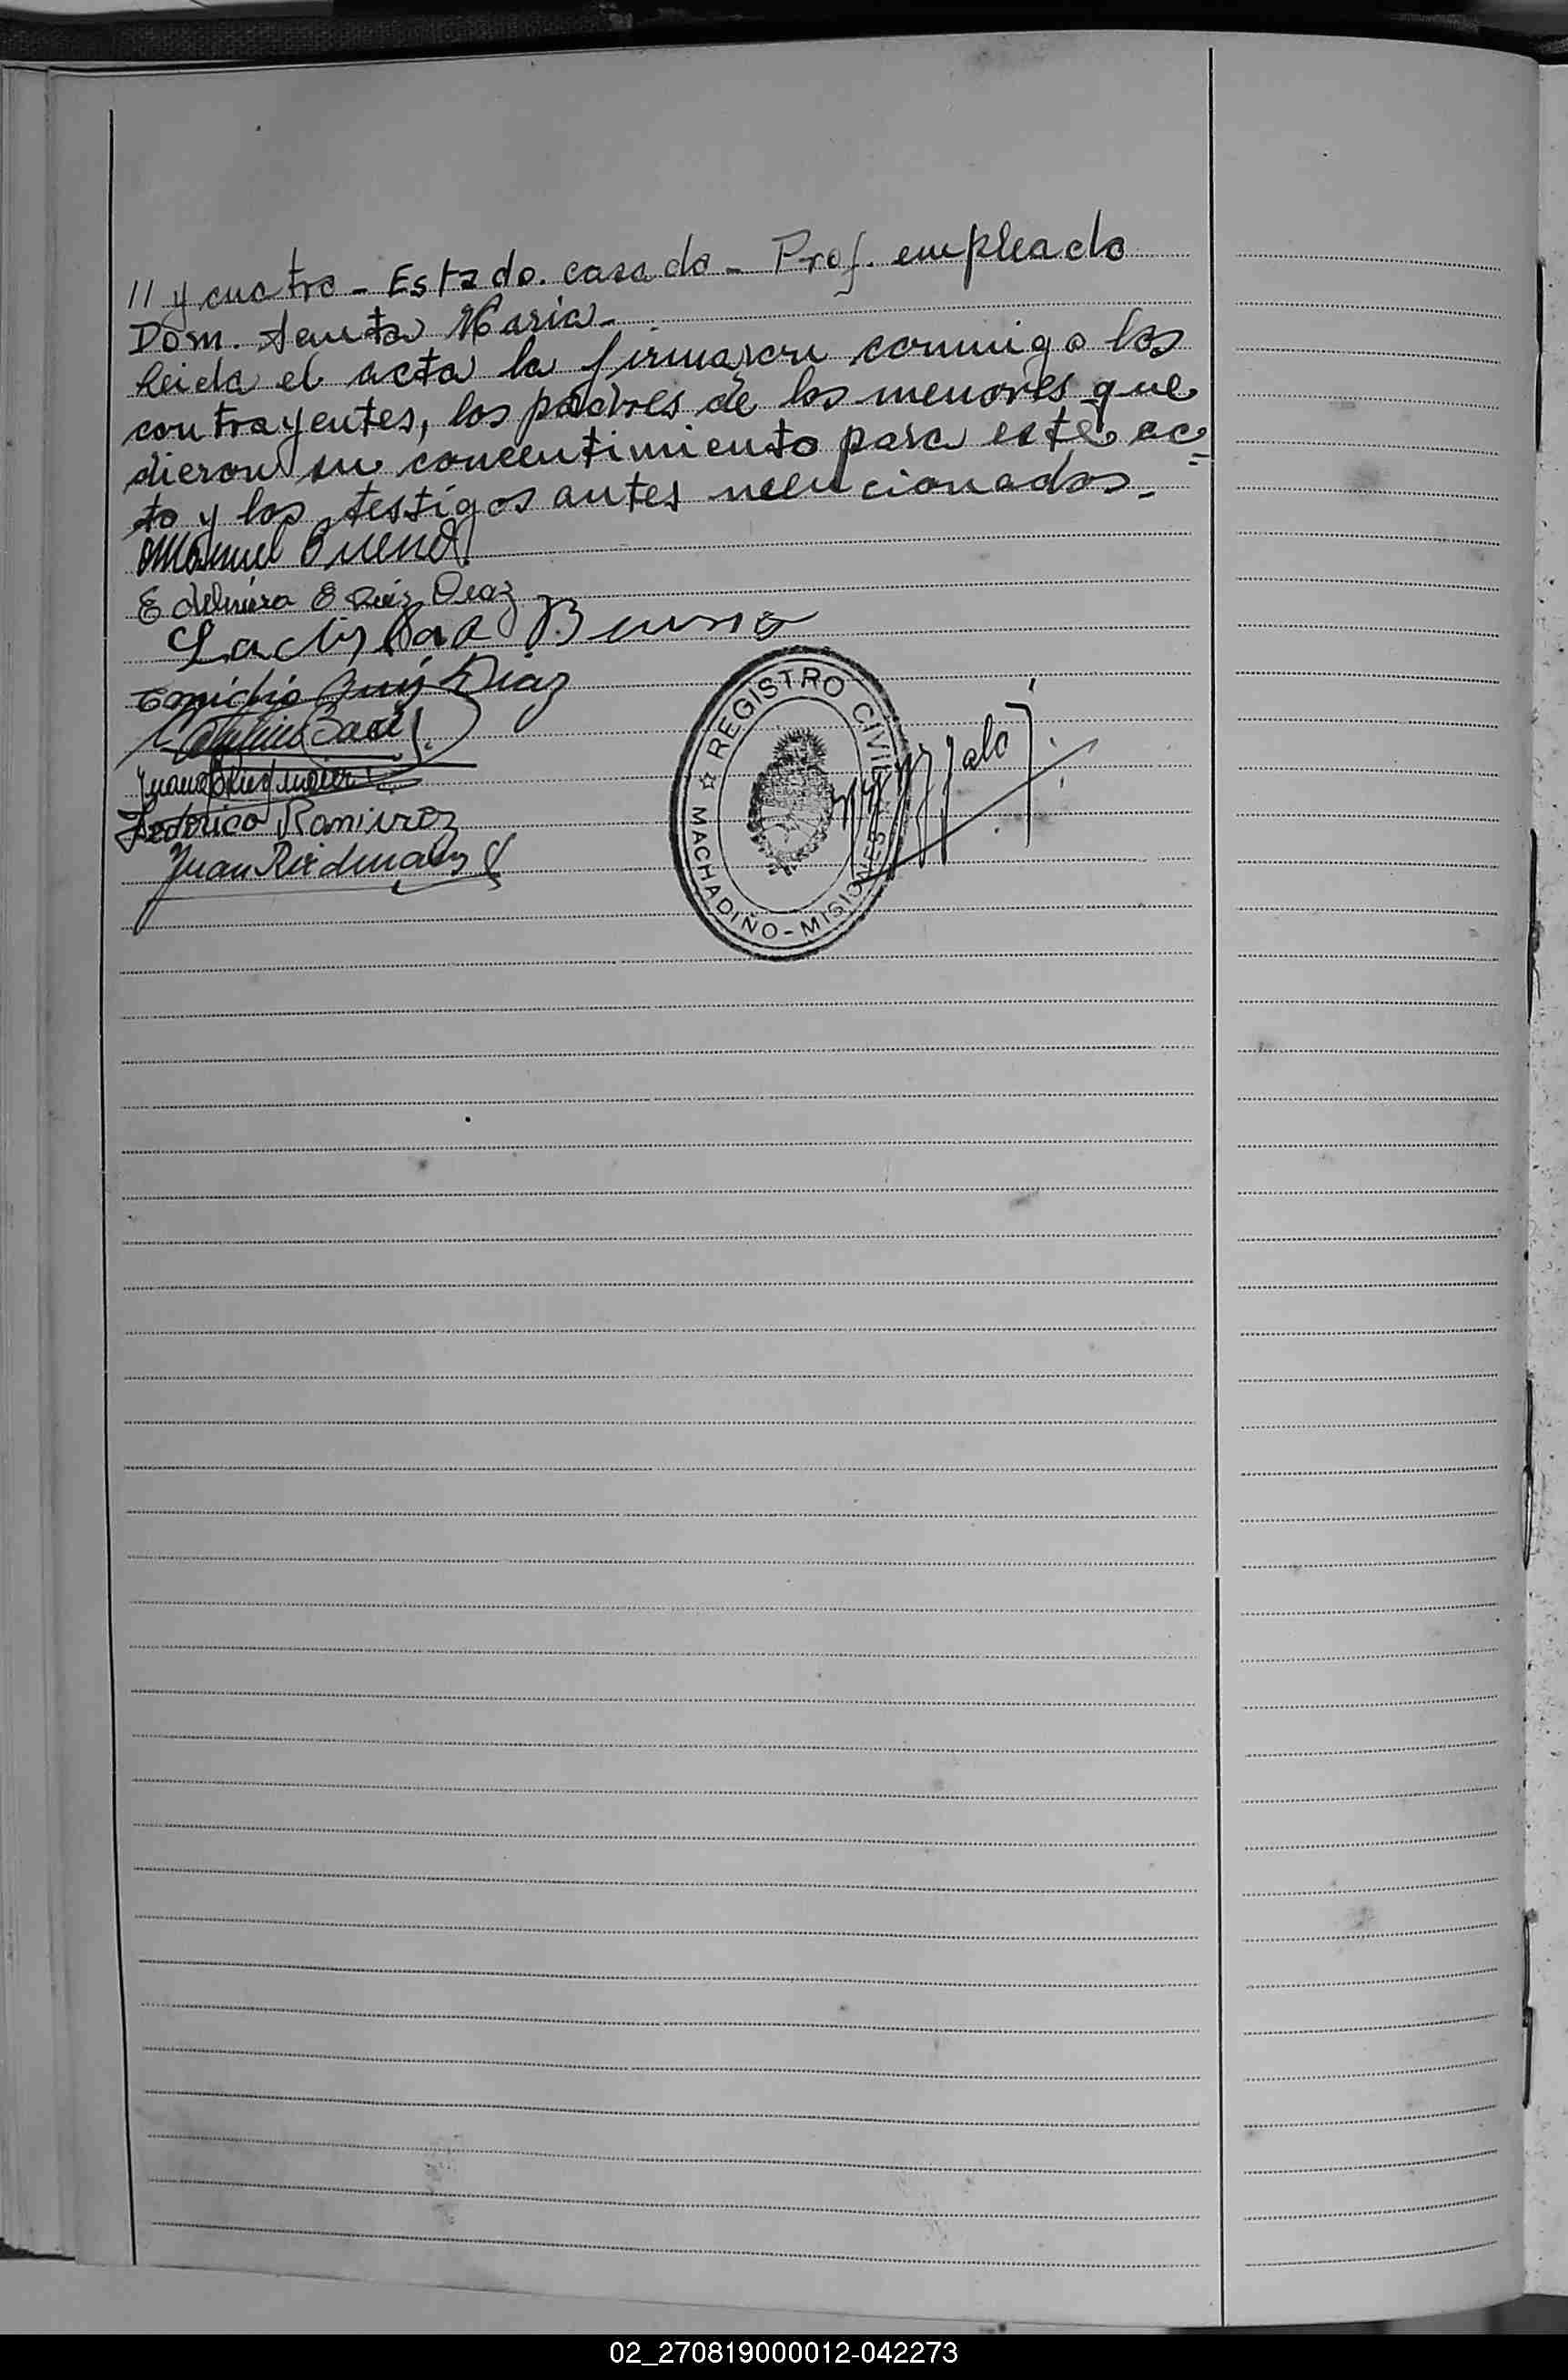 // y cuatro - Estado. casado - Prof. empleado
Dom. Santa Maria -
leida el acta la firmaron conmigo los
contrayentes, los padres de los menores que
dieron su concentimiento para este ac=
to y los testigos antes mencionados.-
Manuel Bueno
Edelmira E Ruiz Diaz
Ladislaa B
Emidio Ruiz Diaz
Juan
Federico Ramirez
Juan Riedmaier
REGISTRO CIVIL
MACHADIÑO - MISIONES
02_270819000012-042273